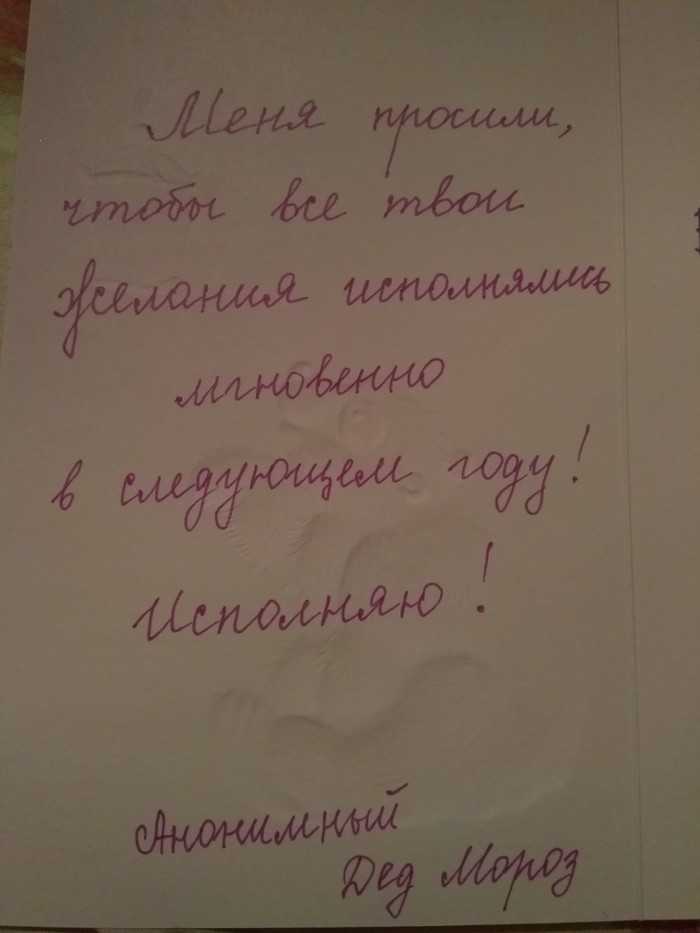 Меня просили,
чтобы все твои
желания исполнялись
мгновенно
в следующем году!
Исполняю!
Анонимный
Дед Мороз